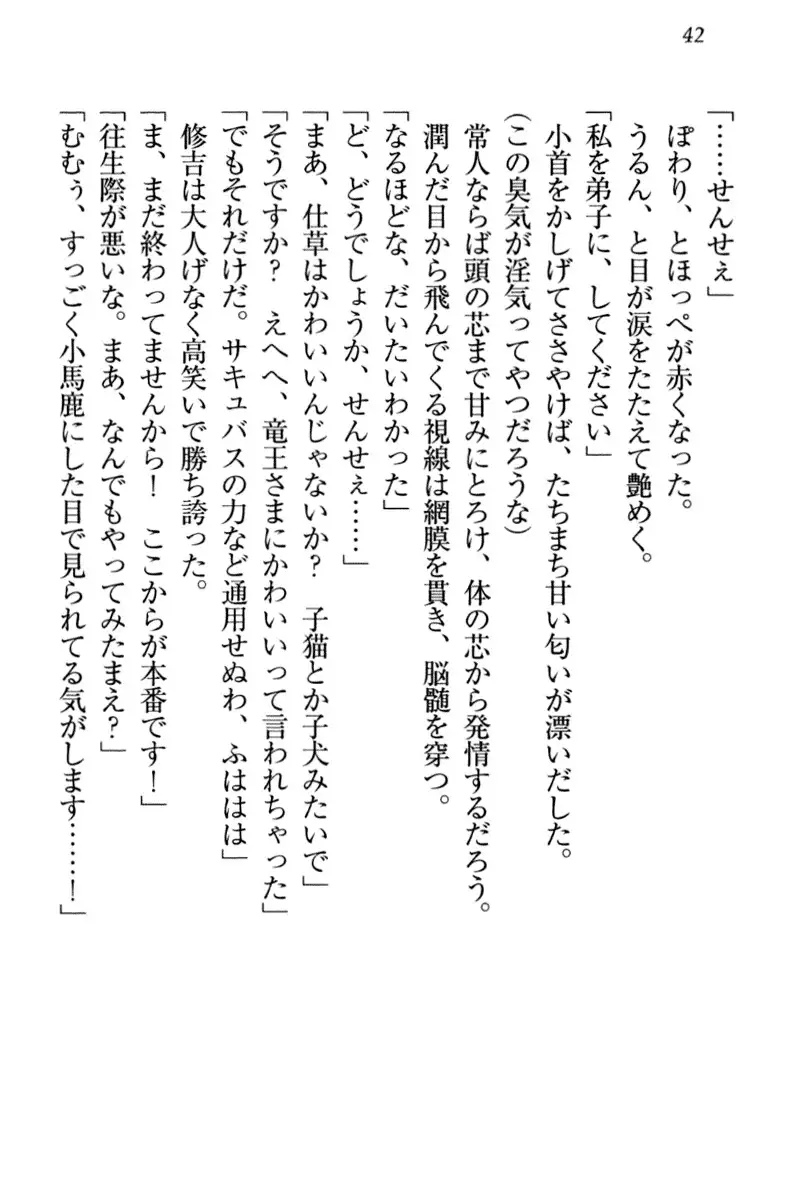 42
「……せんせぇ」
ぽわり、とほっぺが赤くなった。
うるん、と目が涙をたたえて艶めく。
「私を弟子に、してください」
小首をかしげてささやけば、たちまち甘い匂いが漂いだした。
(この臭気が淫気ってやつだろうな)
常人ならば頭の芯まで甘みにとろけ、体の芯から発情するだろう。
潤んだ目から飛んでくる視線は網膜を貫き、脳髄を穿つ。
「なるほどな、だいたいわかった」
「ど、どうでしょうか、せんせぇ……」
「まあ、仕草はかわいいんじゃないか？　子猫とか子犬みたいで」
「そうですか？　えへへ、竜王さまにかわいいって言われちゃった」
「でもそれだけだ。サキュバスの力など通用せぬわ、ふははは」
修吉は大人げなく高笑いで勝ち誇った。
「ま、まだ終わってませんから！　ここからが本番です！」
「往生際が悪いな。まあ、なんでもやってみたまえ？」
「むむぅ、すっごく小馬鹿にした目で見られてる気がします……！」